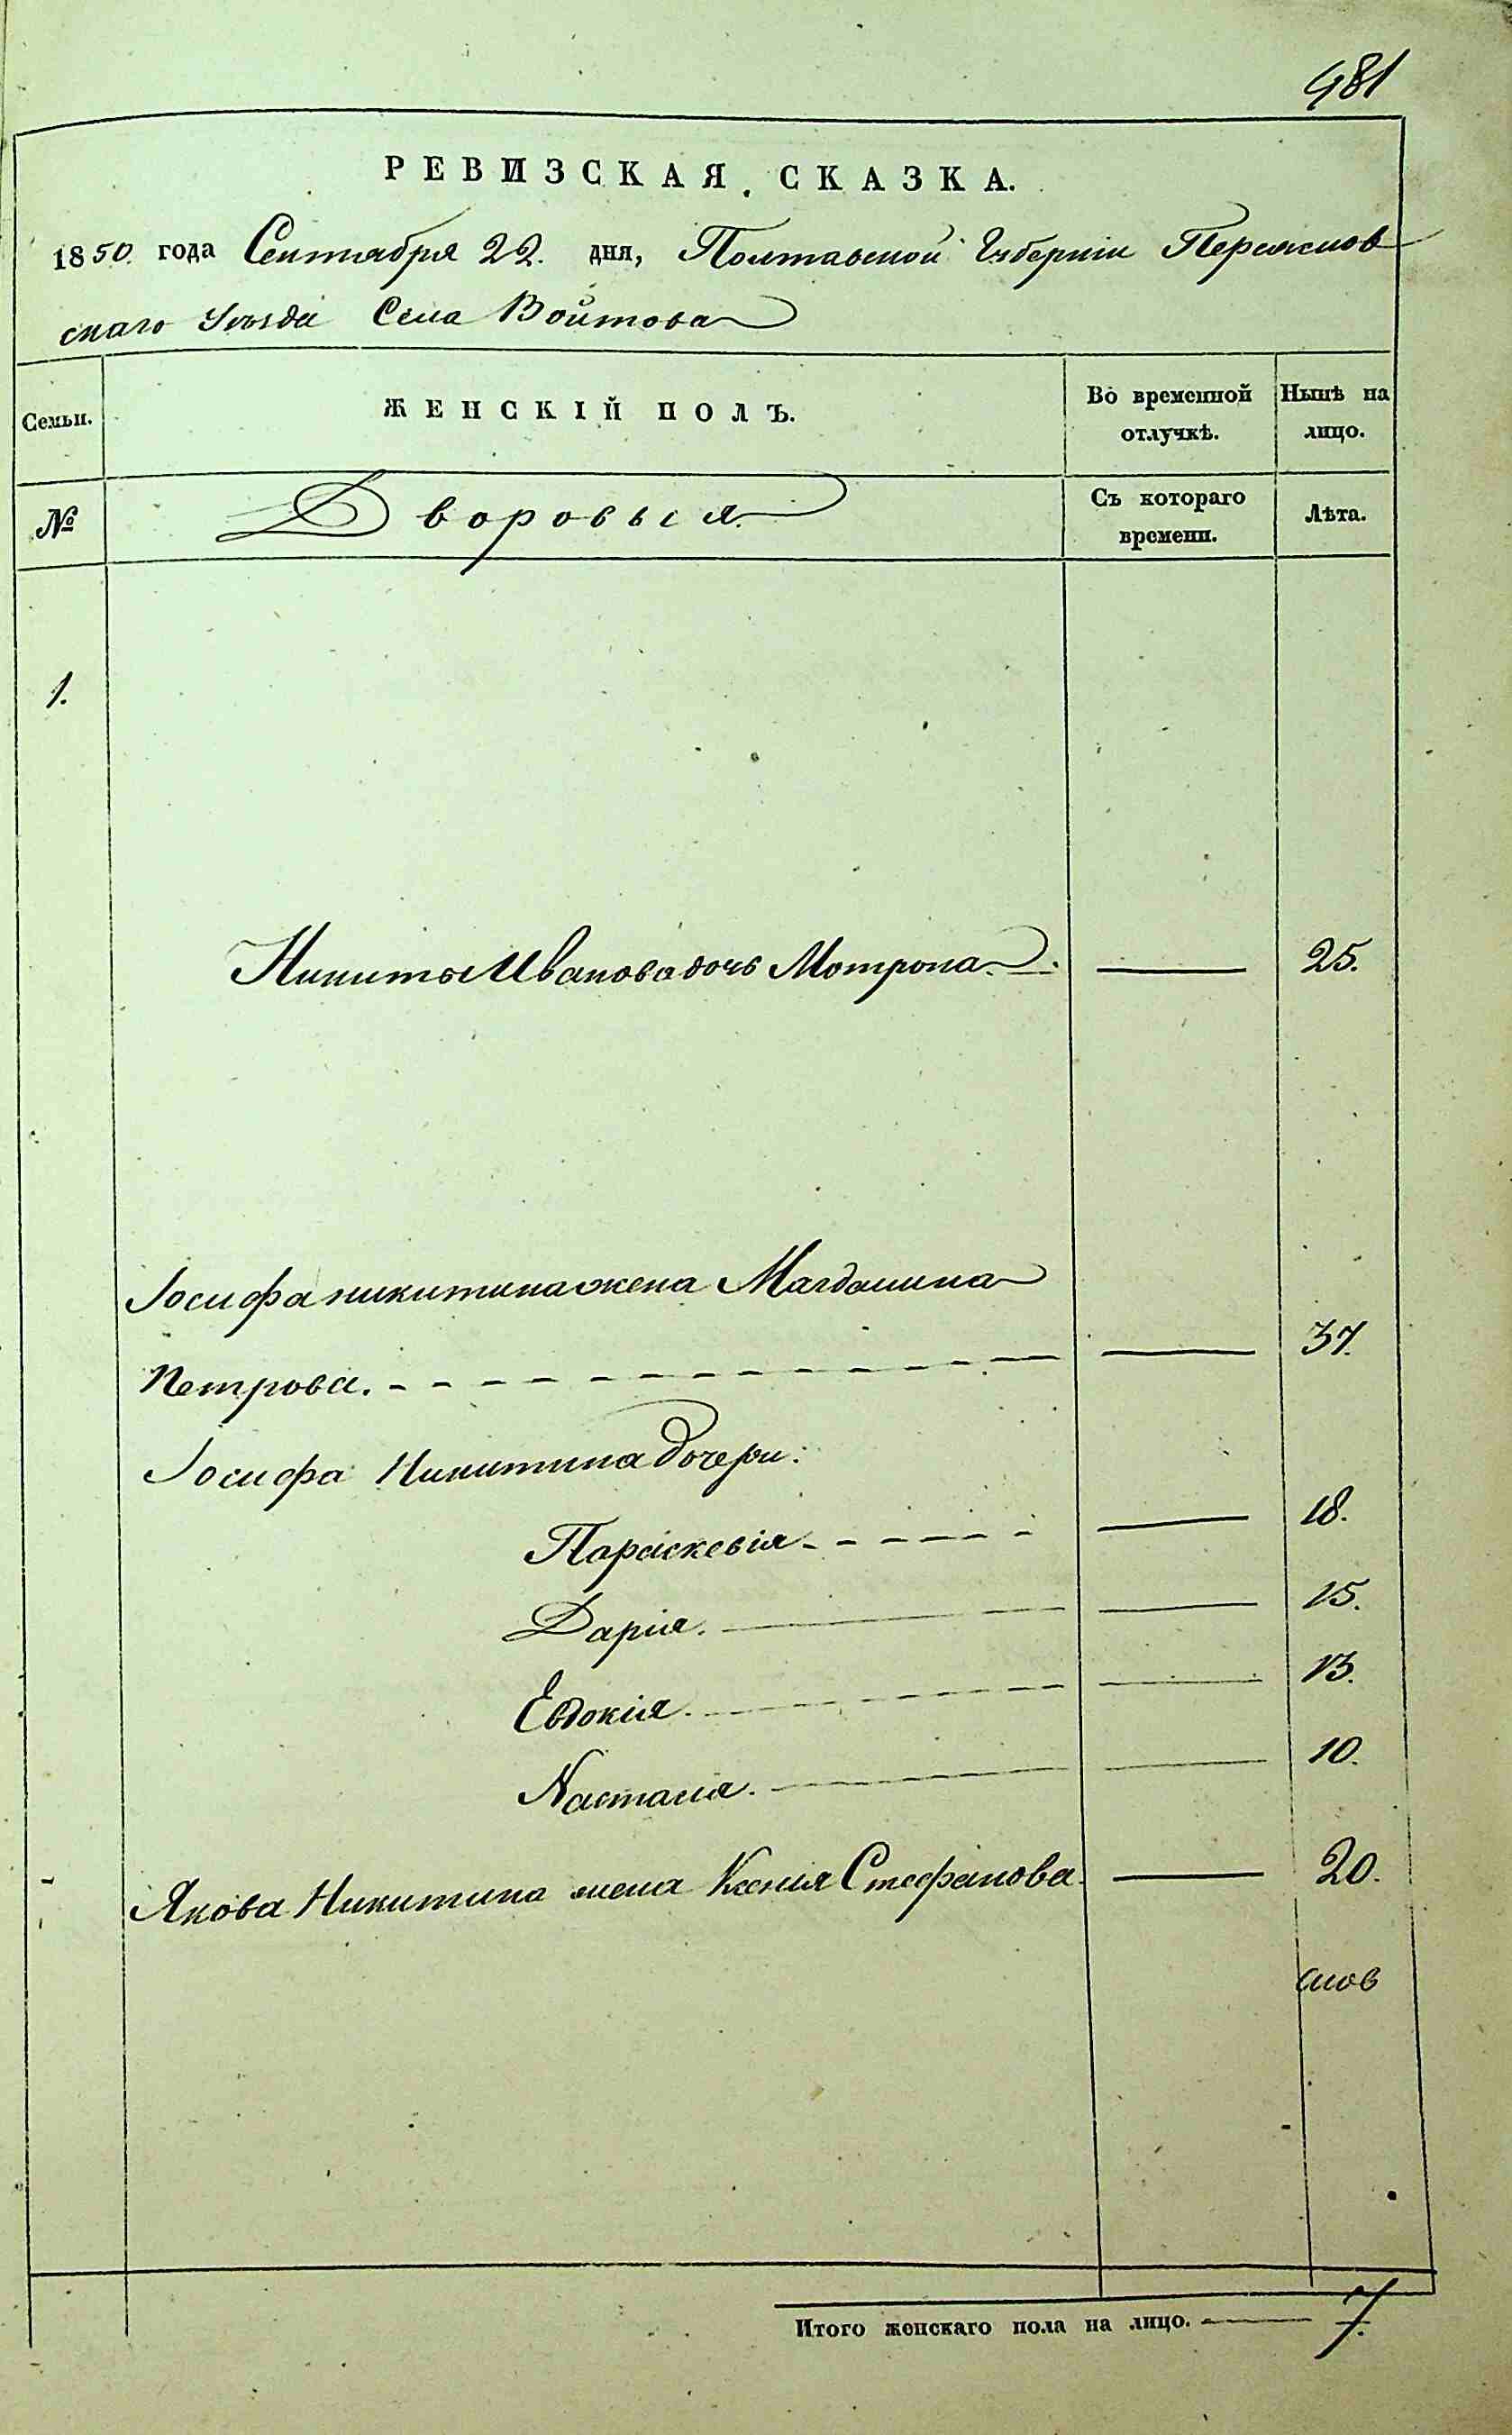 481
РЕВИЗСКАЯ СКАЗКА.
1850 года Сентября 22. дня, Полтавской Губерніи Переяслов
скаго Уѣзда Села Войтова
Семьи. ЖЕНСКІЙ ПОЛЪ. Во временной отлучкѣ. Нынѣ на лицо.
№ Дворовыя. Съ котораго времени. Лѣта.
1.
Никиты Иванова дочь Мотрона. — 25.
Іосифа никитина жена Магдалина
Петрова. — 37.
Іосифа Никитина дочери:
Параскевія — 18.
Дарія. — 15.
Евдокія. — 13.
Настасія. — 10.
Якова Никитина жена Ксенія Стефанова. — 20.
Итого женскаго пола на лицо. — 7.